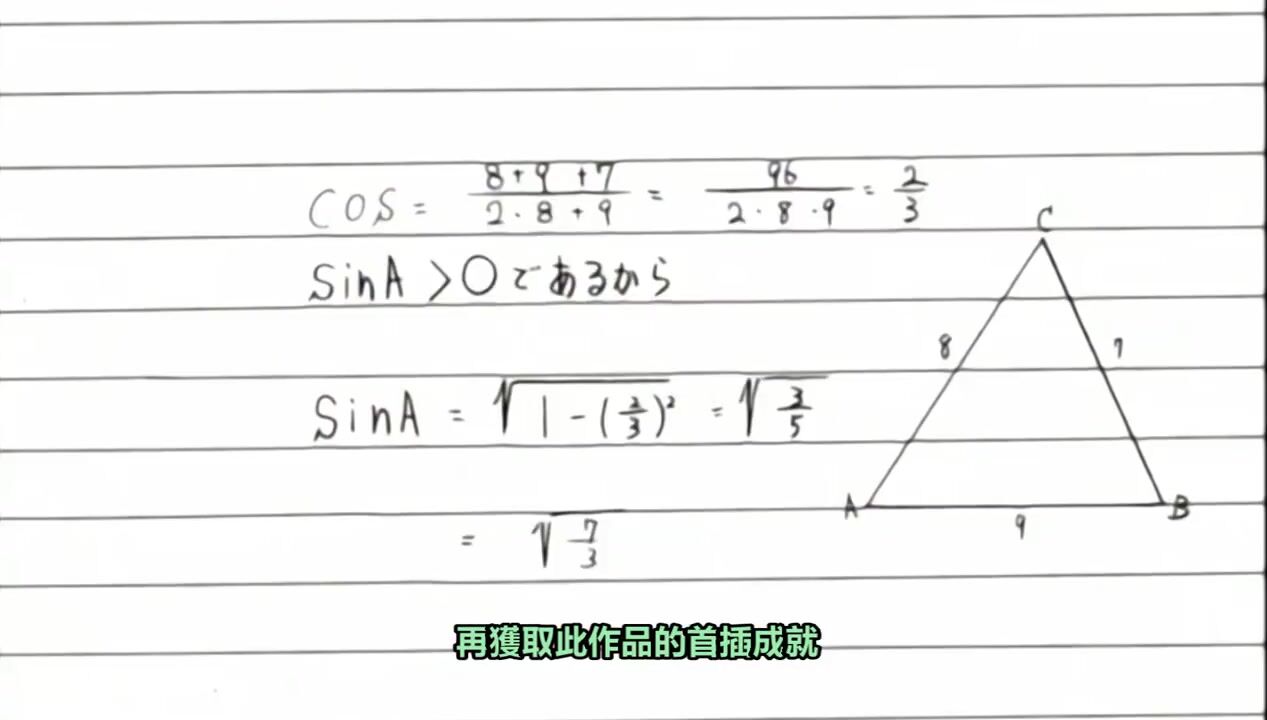 COS = 8+9+7/2・8+9 = 96/2・8・9 = 2/3
C
SinA >〇であるから
8
7
SinA = √1-(2/3)² = √3/5
A
B
9
= √7/3
再獲取此作品的首插成就